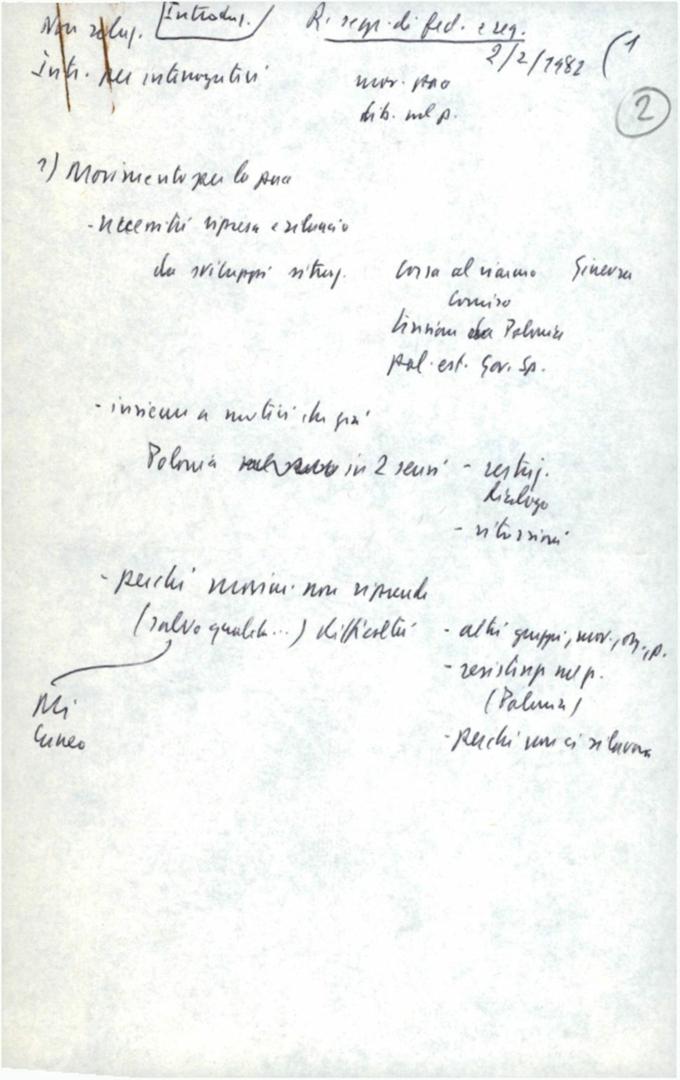 Non relaz. Introduz. R. segr. di fed. e reg.
2/2/1982 (1
Intr. per interrogativi mov. pace
2
dib. nel p.
1) Movimento per la pace
- necessità ripresa e rilancio
da sviluppi situaz. Corsa al riarmo Ginevra
Comiso
tensioni da Polonia
pol. est. Gov. Sp.
- insieme a motivi che già
Polonia in 2 sensi - restrig.
dialogo
- ritorsioni
- perché movim. non riprende
(salvo qualche...) difficoltà - altri gruppi, mov., org., p.
- resistenze nel p.
(Polonia)
Mi
Cuneo
- perché non ci si lavora